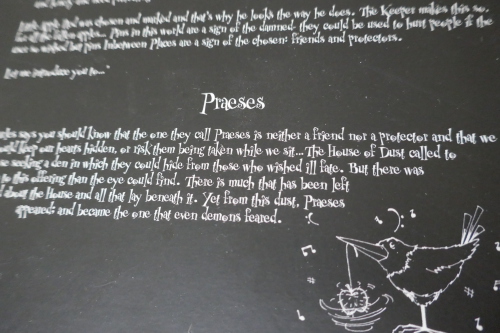 chosen and marked and that's why he looks the way he does. The Keeper makes this so.
Pins in this world are a sign of the damned- they could be used to hunt people if the
wished but pins Inbetween Places are a sign of the chosen: friends and protectors.
Let me introduce you to..."
Praeses
says you should know that the one they call Praeses is neither a friend nor a protector and that we
keep our hearts hidden, or risk them being taken while we sit... The House of Dust called to
seeking a den in which they could hide from those who wished ill fate. But there was
to this offering than the eye could find. There is much that has been left
about the House and all that lay beneath it. Yet from this dust, Praeses
appeared; and became the one that even demons feared.